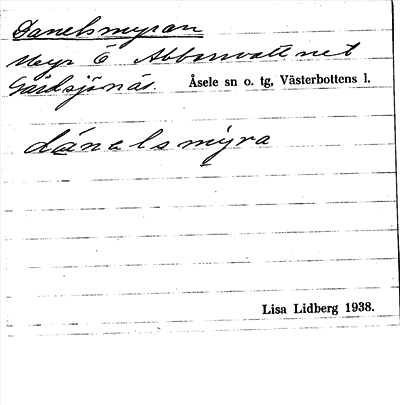 Danelsmyran
Myr Ö Abborrvattnet
Gårdsjönäs. Åsele sn o. tg, Västerbottens l.
dánəlsmy̨ra
Lisa Lidberg 1938.